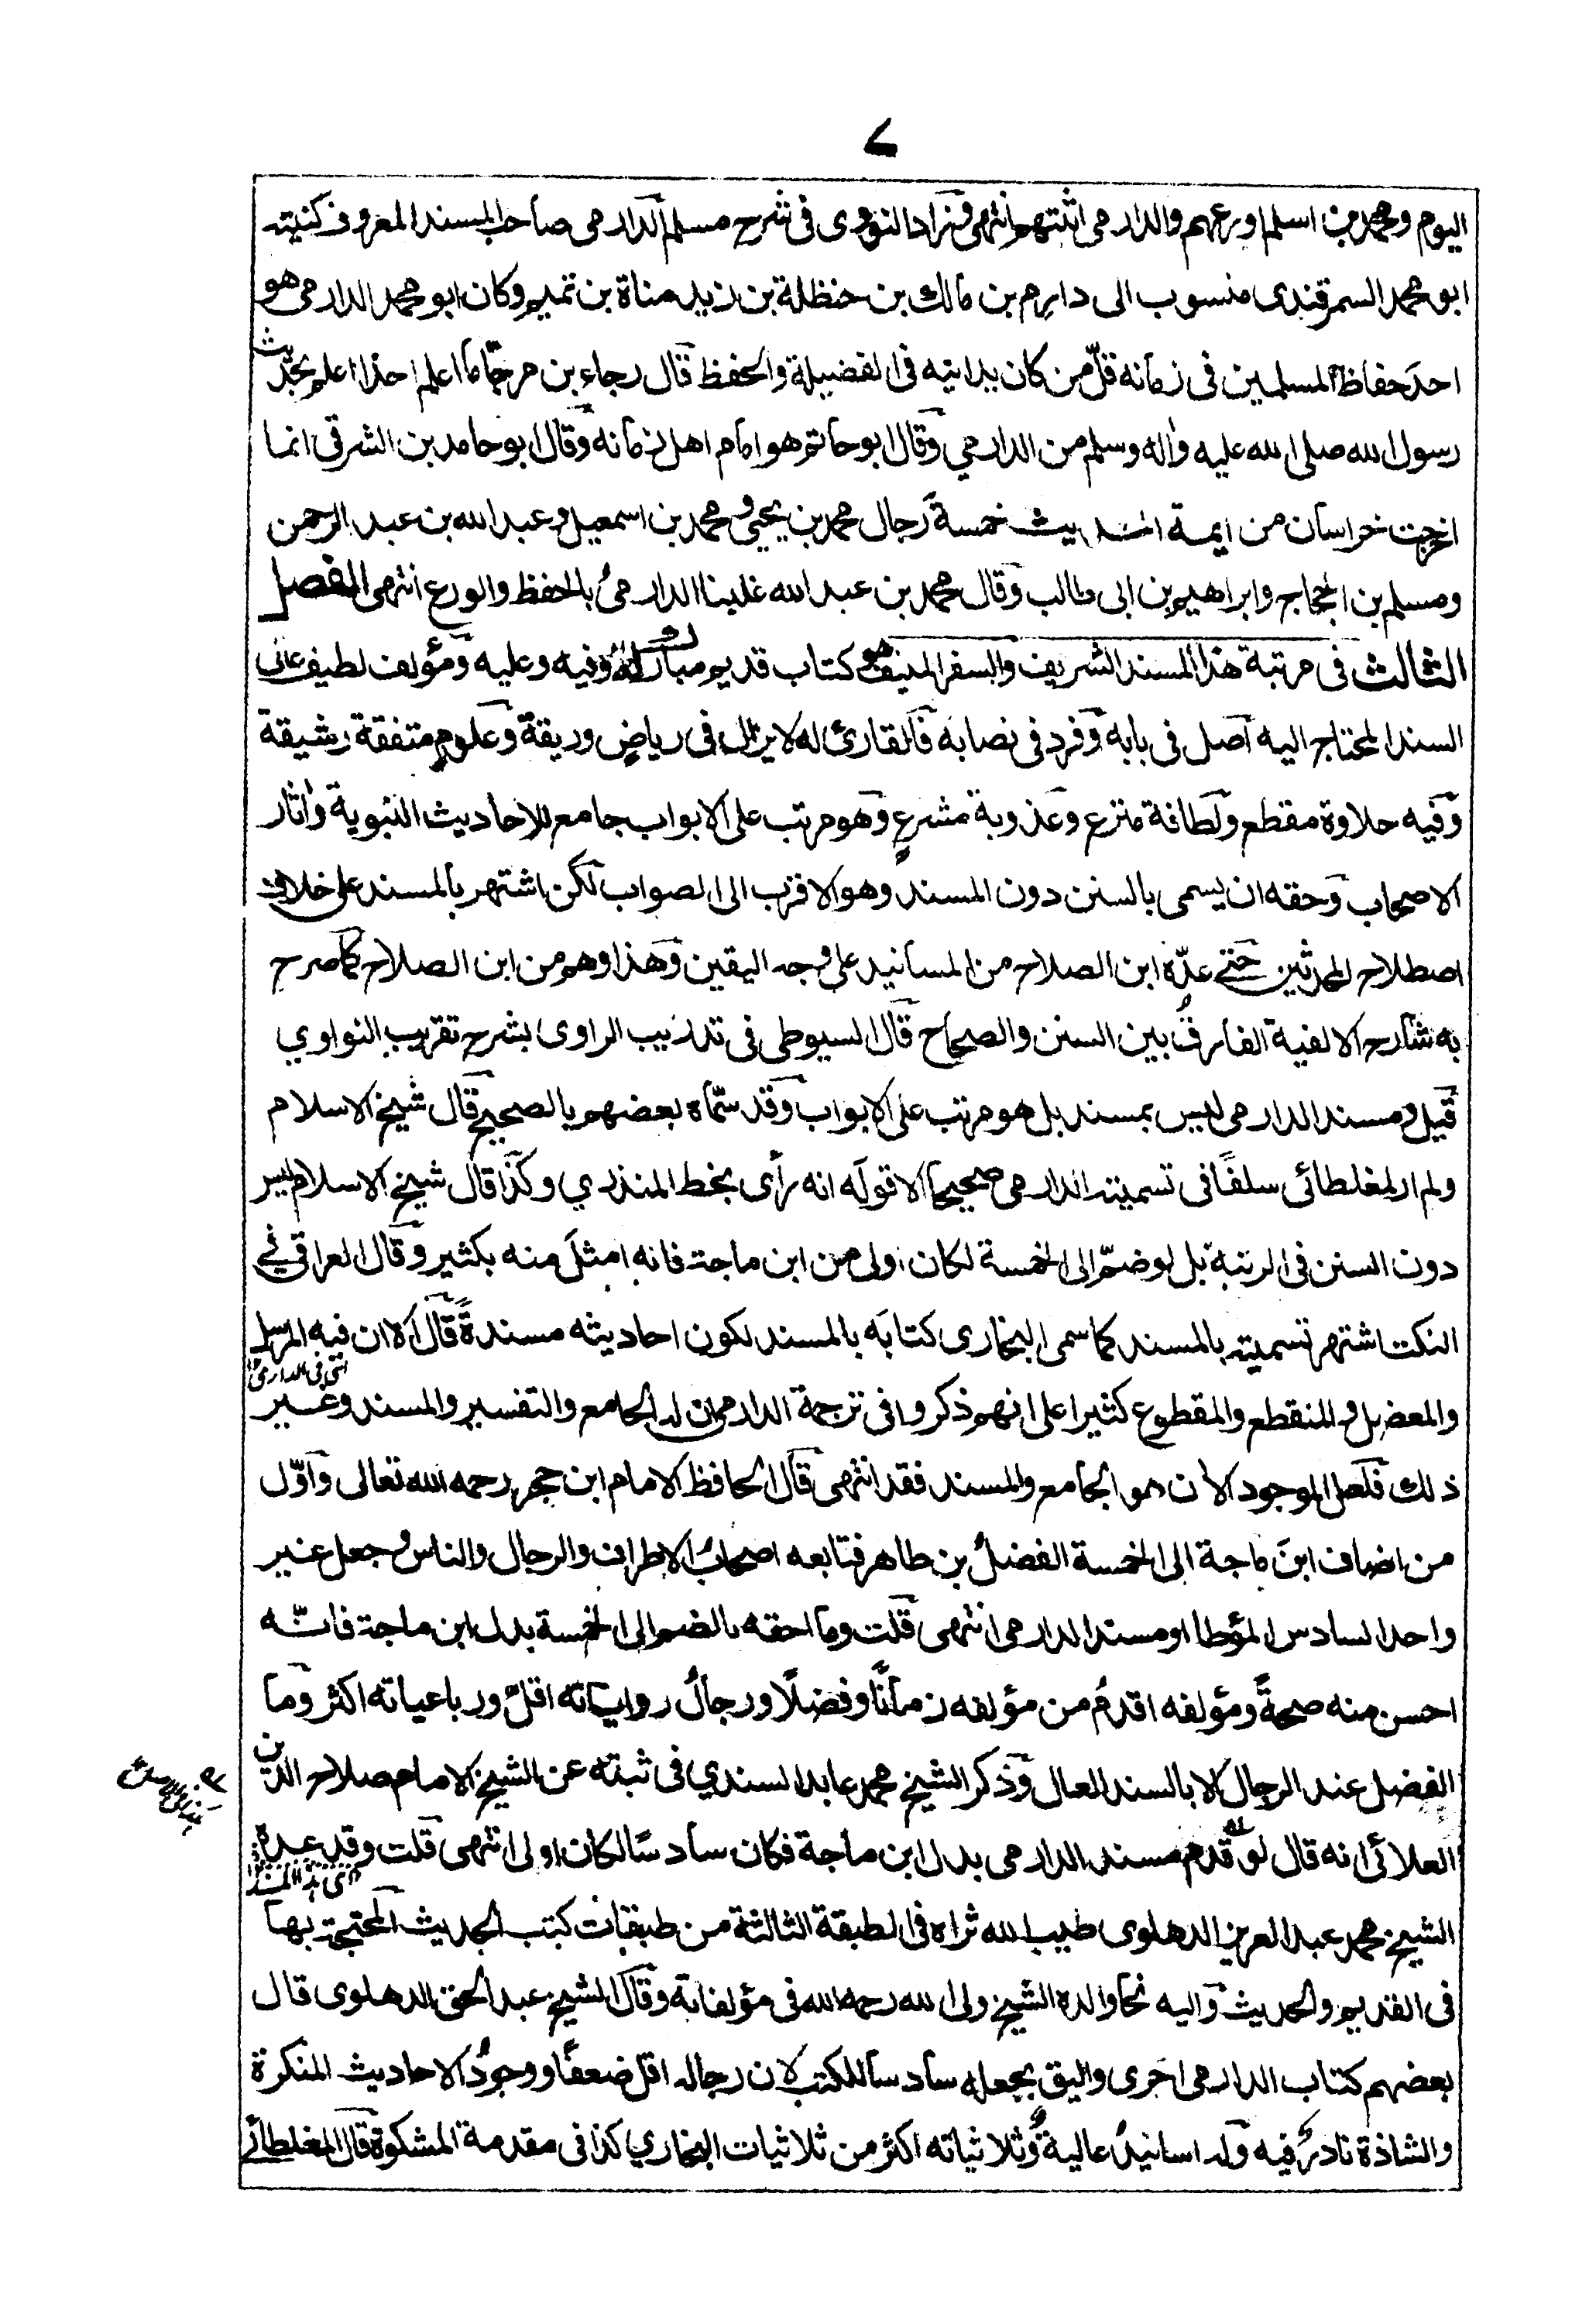 ٧
اليوم ومحمد بن اسلم اورعهم والدارمي اثبتهم انتهى وزاد النووى فى شرح مسلم الدارمى صاحب المسند المعروف كنيته
ابو محمد السمرقندى منسوب الى دارم بن مالك بن حنظلة بن زيد مناة بن تميم وكان ابو محمد الدارمى هو
احد حفاظ المسلمين فى زمانه قلّ من كان يدانيه فى الفضيلة والحفظ قال رجاء بن مرجّا ما اعلم احدا اعلم بحديث
رسول الله صلى الله عليه واله وسلم من الدارمي وقال ابو حاتم هو امام اهل زمانه وقال ابو حامد بن الشرقى انما
اخرجت خراسان من ايمة الحديث خمسة رجال محمد بن يحيى ومحمد بن اسمعيل وعبد الله بن عبد الرحمن
ومسلم بن الحجاج وابراهيم بن ابى طالب وقال محمد بن عبد الله غلبنا الدارمىُ بالحفظ والورع انتهى الفصل
الثالث فى مرتبة هذا المسند الشريف والسفر المنيف هو كتاب قديم مبارك وفيه وعليه ومؤلف لطيف عالى
السند المحتاج اليه اصل فى بابه وفرد فى نصابه فالقارئ له لا يزال فى رياضٍ وريقة وعلومٍ متفقة رشيقة
وفيه حلاوة مقطع ولطافة منزع وعذوبة مشرعٍ وهو مرتب على الابواب جامع للاحاديث النبوية واثار
الاصحاب وحقه ان يسمى بالسنن دون المسند وهو الاقرب الى الصواب لكن اشتهر بالمسند على خلاف
اصطلاح المحدثين حتى عدّه ابن الصلاح من المسانيد على وجه اليقين وهذا وهم من ابن الصلاح كما صرح
به شارح الالفية الفارقُ بين السنن والصحاح قال السيوطى فى تدريب الراوى بشرح تقريب النواوي
قيل ومسند الدارمى ليس بمسند بل هو مرتب على الابواب وقد سمّاه بعضهم بالصحيح قال شيخ الاسلام
ولم ار لمغلطائى سلفًا فى تسميته الدارمى صحيحا الا قوله انه رأى بخط المنذري وكذا قال شيخ الاسلام ليس
دون السنن فى الرتبة بل لو ضمّ الى الخمسة لكان اولى من ابن ماجة فانه امثل منه بكثير وقال العراقى فى
النكت اشتهر تسميته بالمسند كما سمى البخارى كتابه بالمسند لكون احاديثه مسندةً قال الا ان فيه المرسل
والمعضل والمنقطع والمقطوع كثيرا على انهم ذكروا فى ترجمة الدارمى ان له الجامع والتفسير والمسند وغير
ذلك فلعل الموجود الأن هو الجامع والمسند فقد انتهى قال الحافظ الامام ابن حجر رحمه الله تعالى واوّل
من اضاف ابنَ ماجة الى الخمسة الفضلُ بن طاهر فتابعه اصحابُ الاطراف والرجال والناس وجعل غير
واحد السادس المؤطا او مسند الدارمى انتهى قلت وما احقه بالضم الى الخمسة بدل ابن ماجة فانّه
احسن منه صحةً ومؤلفه اقدمُ من مؤلفه زمانًا وفضلًا ورجالُ رواياته اقلّ ورباعياته اكثر وما
الفضل عند الرجال الا بالسند العال وذكر الشيخ محمد عابد السندي فى ثبته عن الشيخ الامام صلاح الدين
العلائى انه قال لو قدم مسند الدارمى بدل ابن ماجة فكان سادسًا لكان اولى انتهى قلت وقد عده
الشيخ محمد عبد العزيز الدهلوى طيب الله ثراه فى الطبقة الثالثة من طبقات كتب الحديث المحتجة بها
فى القديم والحديث واليه نحا والده الشيخ ولى الله رحمه الله فى مؤلفاته وقال الشيخ عبد الحق الدهلوى قال
بعضهم كتاب الدارمى احرى واليق بجعله سادسا للكتب لان رجاله اقل ضعفًا ووجودُ الاحاديث المنكرة
والشاذة نادرٌ فيه وله اسانيدُ عالية وثلاثياته اكثر من ثلاثيات البخاري كذا فى مقدمة المشكوة قال المغلطائى